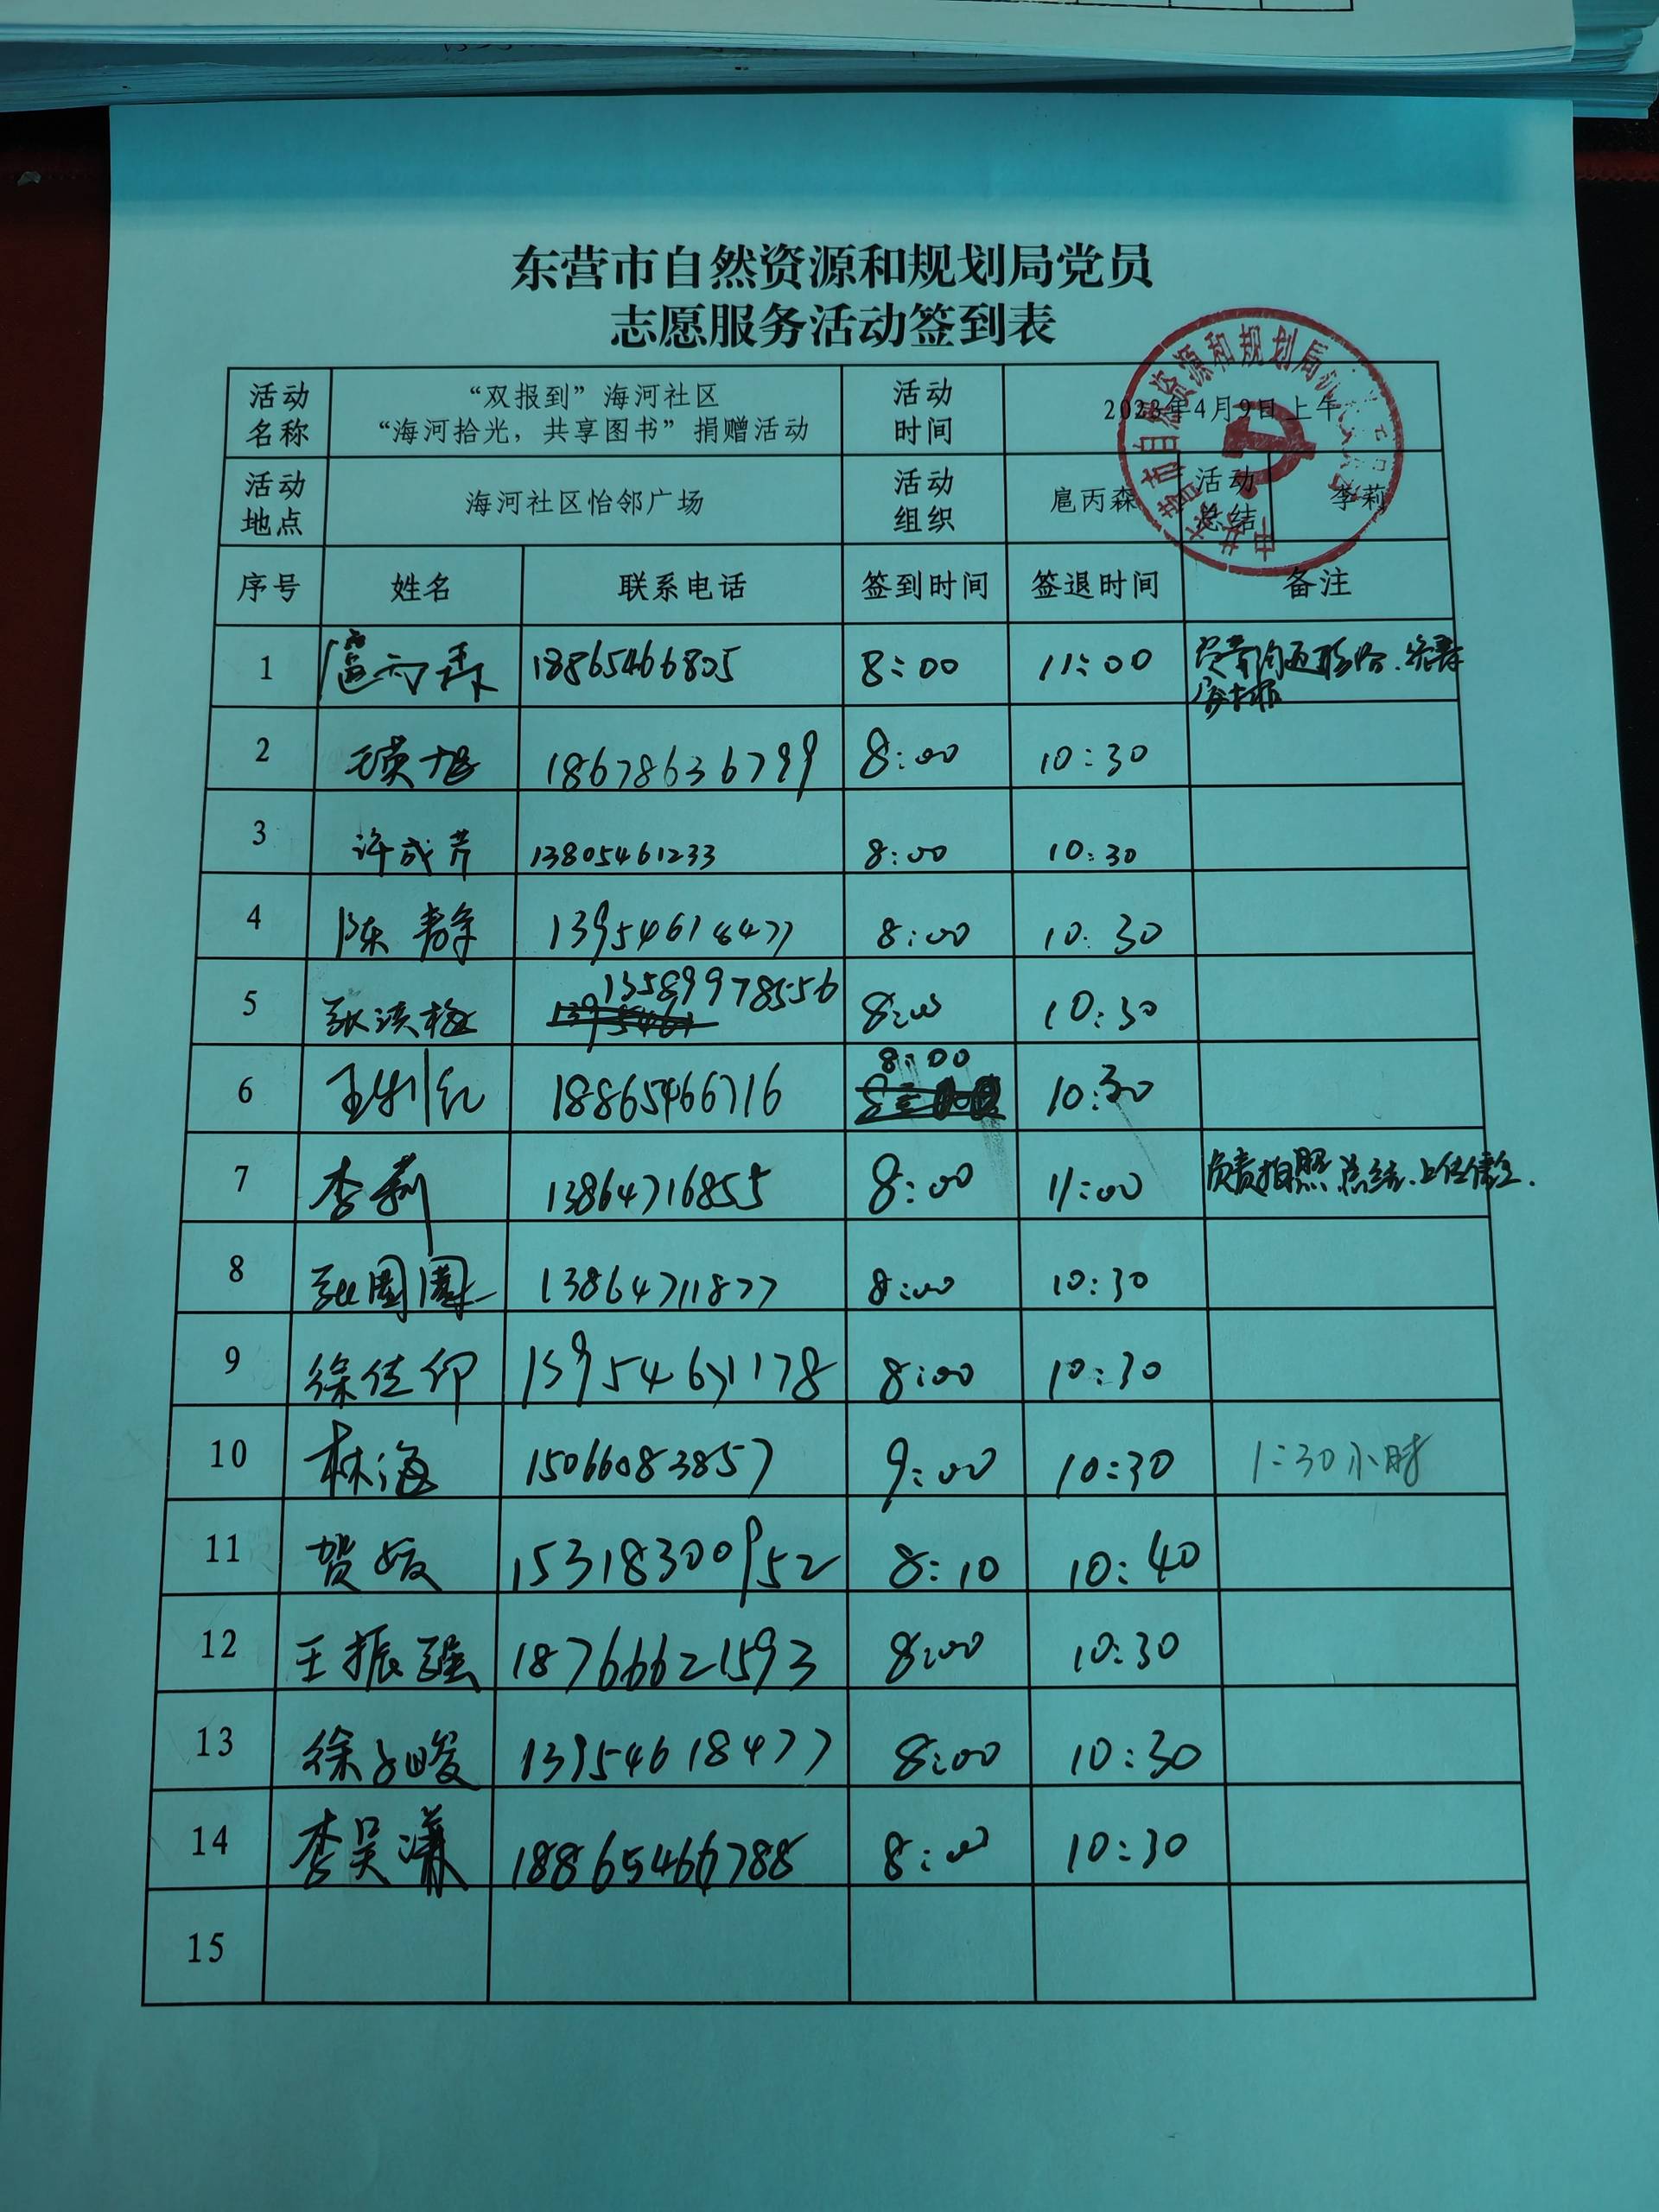 东营市自然资源和规划局党员
志愿服务活动签到表
活动名称 “双报到”海河社区“海河拾光，共享图书”捐赠活动 活动时间 2023年4月9日上午
活动地点 海河社区怡邻广场 活动组织 扈丙森 活动总结 李莉
序号 姓名 联系电话 签到时间 签退时间 备注
1 扈丙森 18865466805 8:00 11:00
2 18678636799 8:00 10:30
3 许成芹 13805461233 8:00 10:30
4 陈静 13954618477 8:00 10:30
5 13589978556 8:00 10:30
6 王利红 18865466716 8:00 10:30
7 李莉 13864716855 8:00 11:00 负责拍照总结、上传
8 张园园 13864711877 8:00 10:30
9 徐佳 13954671178 8:00 10:30
10 林海 15066083857 9:00 10:30 1:30小时
11 贺媛 15318300952 8:10 10:40
12 王振强 18766621593 8:00 10:30
13 徐子峻 13954618477 8:00 10:30
14 李昊潇 18865466788 8:00 10:30
15